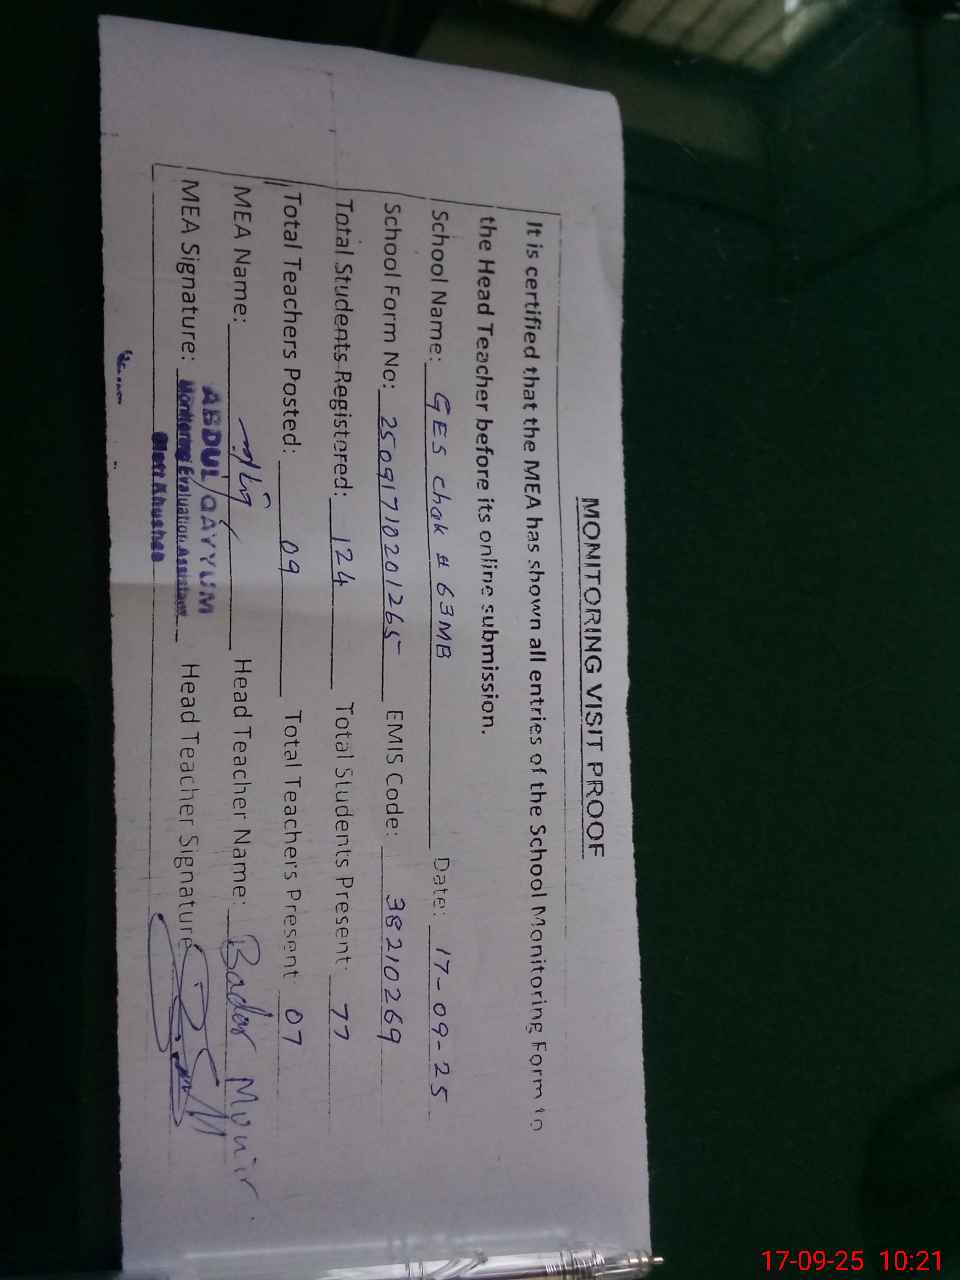 MONITORING VISIT PROOF
It is certified that the MEA has shown all entries of the School Monitoring Form to
the Head Teacher before its online submission.
School Name: GES Chak # 63MB Date: 17-09-25
School Form No: 25091710201265 EMIS Code: 38210269
Total Students Registered: 124 Total Students Present: 77
Total Teachers Posted: 09 Total Teachers Present: 07
MEA Name: Head Teacher Name: Badar Monir
ABDUL QAYYUM
MEA Signature: Monitoring Evaluation Assistant Head Teacher Signature
Khushab
17-09-25 10:21